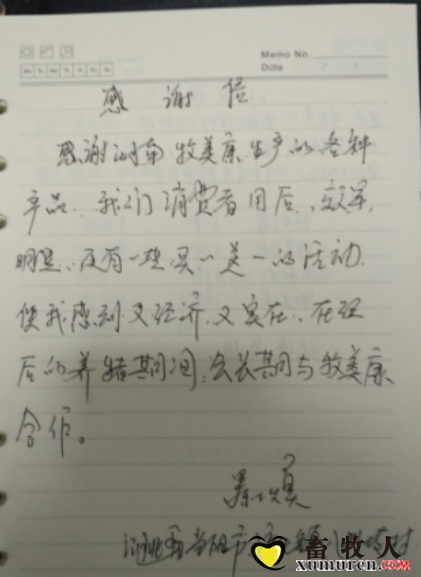 Memo No.
Date / /
感谢信
感谢河南牧美康生产的各种
产品、我们消费者用后、效果
明显、没有一些买一送一的活动.
使我感到又经济、又实在、在现
后的养猪期间、会长期与牧美康
合作。
畜牧人
xumuren.com